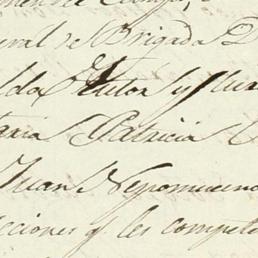 eral de Brigada D
lda Tutor y Cura
aria Patricia
Juan Nepomuceno
cciones q. les compete